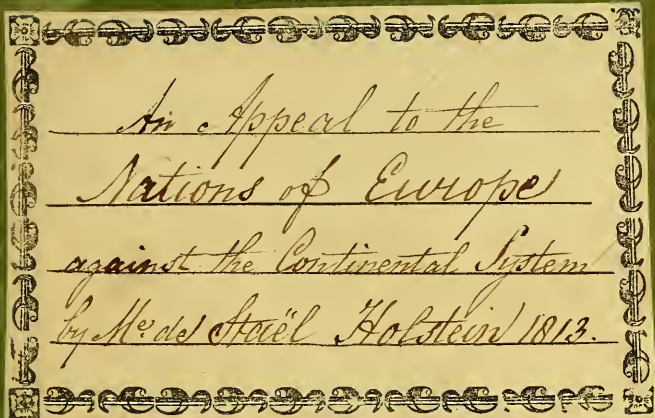 An Appeal to the
Nations of Europe
against the Continental System
by Me. de Staël Holstein 1813.